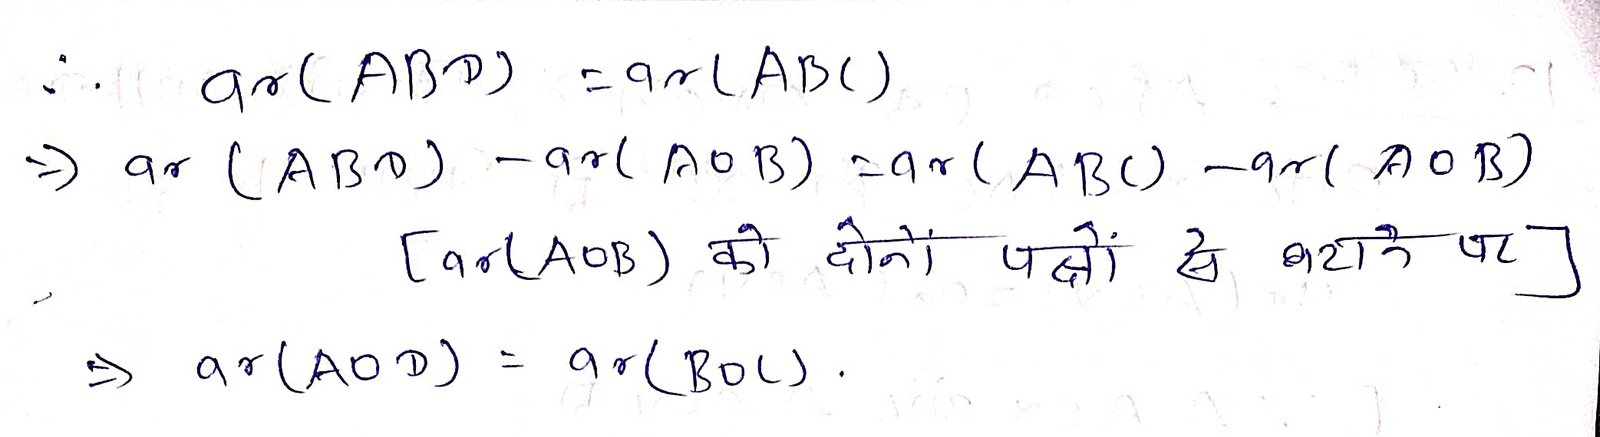 ∴ ar(ABD) = ar(ABC)
⇒ ar (ABD) - ar(AOB) = ar(ABC) - ar(AOB)
[ar(AOB) को दोनों पक्षों से घटाने पर]
⇒ ar(AOD) = ar(BOC).